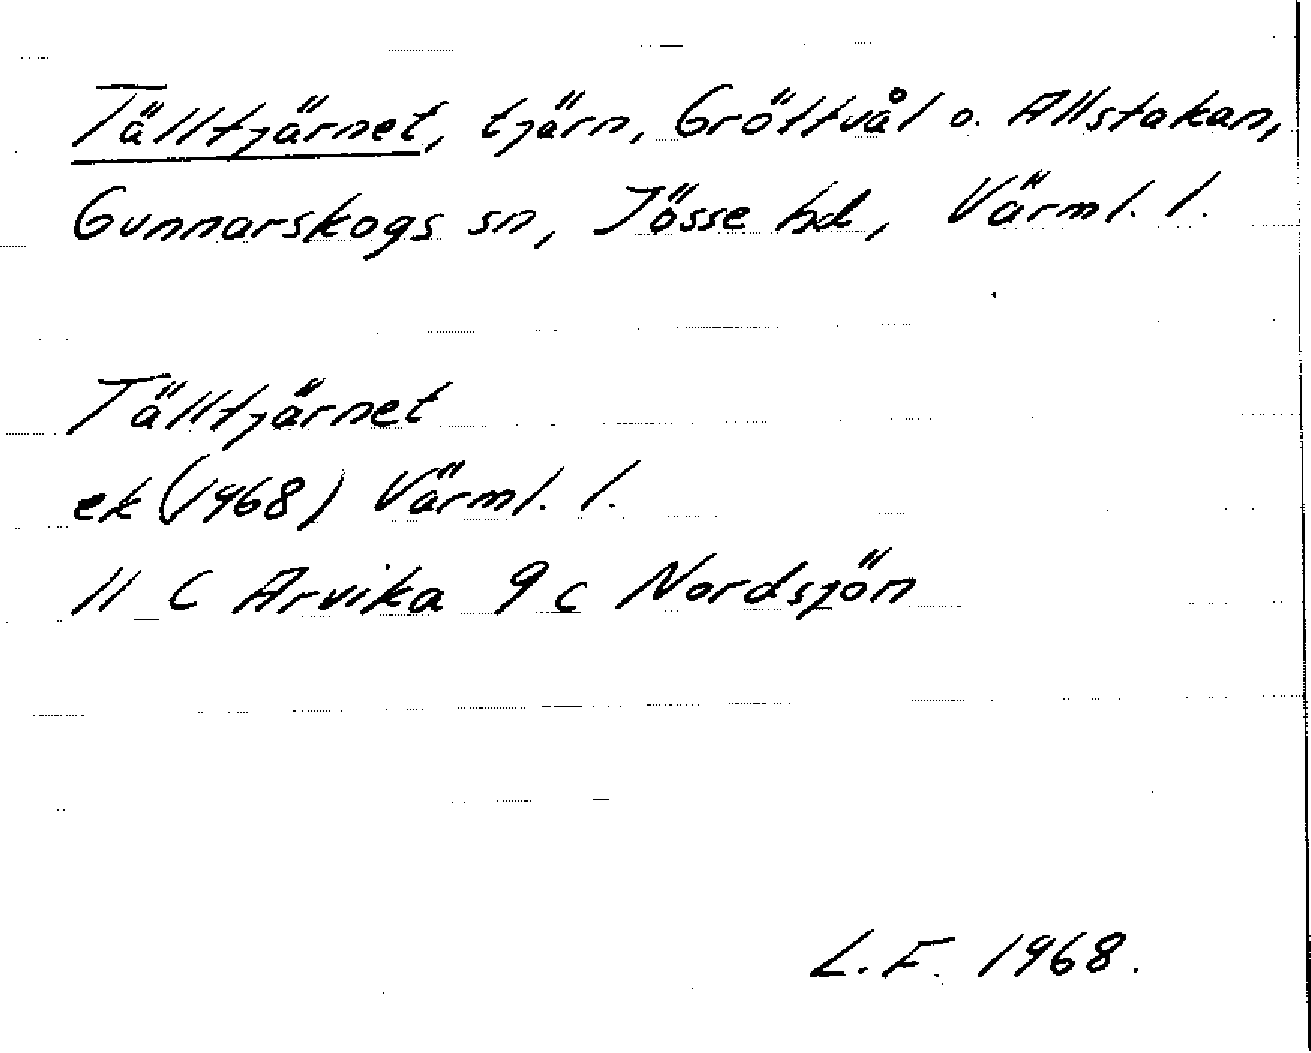 Tälltjärnet, tjärn, Gröttvål o. Allstakan,
Gunnarskogs sn, Jösse hd, Värml. l.
Tälltjärnet
ek (1968) Värml. l.
11 C Arvika 9 c Nordsjön
L.F. 1968.